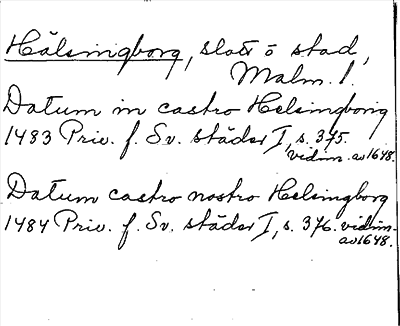 Hälsingborg, slott o stad,
Malm. l.
Datum in castro Helsingborig
1483 Priv. f. Sv. städer I, s. 375.
vidim. av 1648.
Datum castro nostro Helsingborg
1484 Priv. f. Sv. städer I, s. 376. vidim.
av 1648.